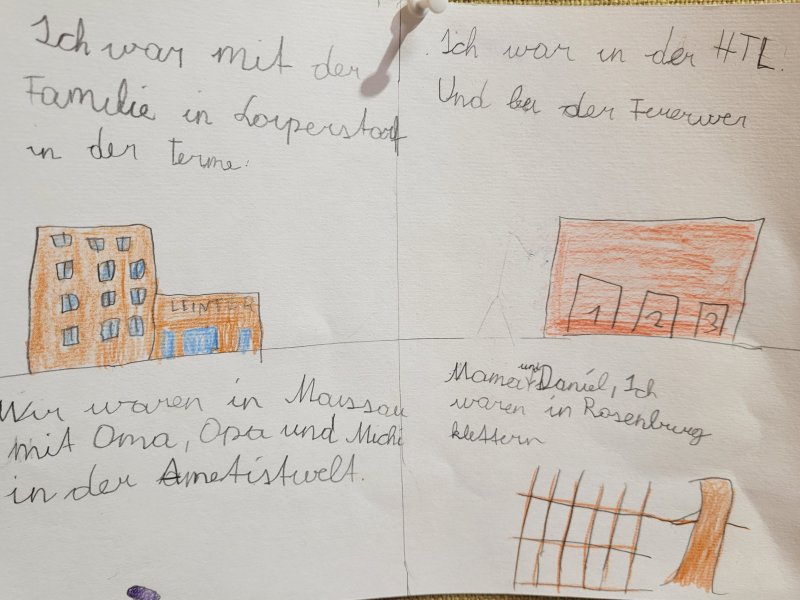 Ich war mit der
Familie in Loiperstorf
in der terme.
LEINTER
Ich war in der HTL.
Und bei der Feuerwer
1 2 3
Wir waren in Maissau
mit Oma, Opa und Michi
in der Ametistwelt.
Mama und Daniel, Ich
waren in Rosenburg
klettern